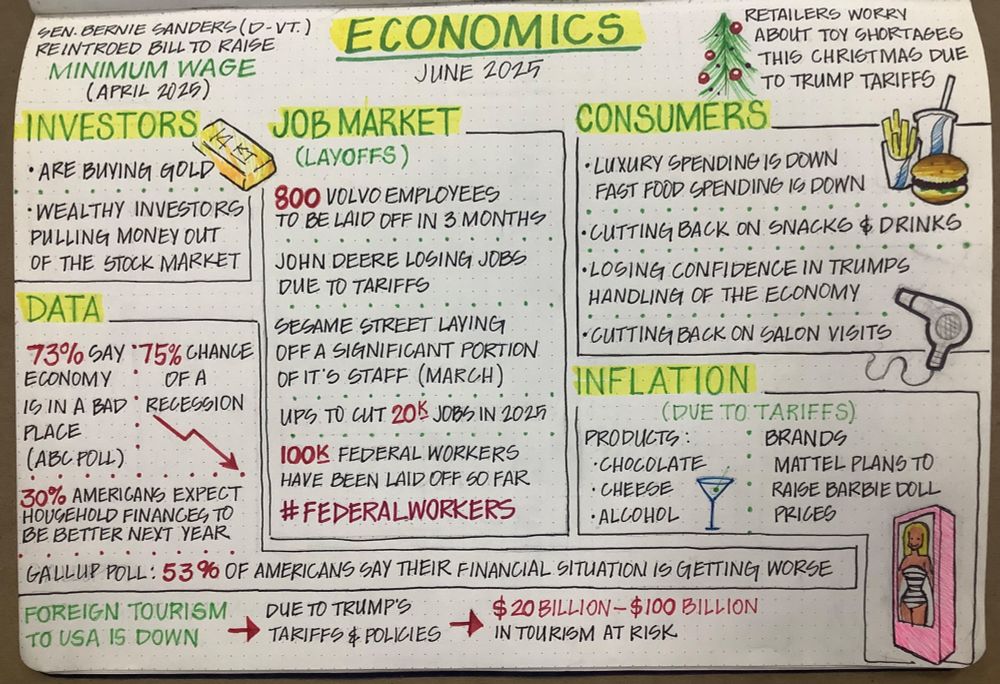 SEN. BERNIE SANDERS (D-VT.)
REINTROED BILL TO RAISE
MINIMUM WAGE
(APRIL 2025)
ECONOMICS
JUNE 2025
RETAILERS WORRY
ABOUT TOY SHORTAGES
THIS CHRISTMAS DUE
TO TRUMP TARIFFS
INVESTORS
14 KT
• ARE BUYING GOLD
• WEALTHY INVESTORS
PULLING MONEY OUT
OF THE STOCK MARKET
DATA
73% SAY
ECONOMY
IS IN A BAD
PLACE
(ABC POLL)
75% CHANCE
OF A
RECESSION
30% AMERICANS EXPECT
HOUSEHOLD FINANCES TO
BE BETTER NEXT YEAR
JOB MARKET
(LAYOFFS)
800 VOLVO EMPLOYEES
TO BE LAID OFF IN 3 MONTHS
JOHN DEERE LOSING JOBS
DUE TO TARIFFS
SESAME STREET LAYING
OFF A SIGNIFICANT PORTION
OF IT'S STAFF (MARCH)
UPS TO CUT 20K JOBS IN 2025
100K FEDERAL WORKERS
HAVE BEEN LAID OFF SO FAR
#FEDERALWORKERS
CONSUMERS
• LUXURY SPENDING IS DOWN
FAST FOOD SPENDING IS DOWN
• CUTTING BACK ON SNACKS & DRINKS
• LOSING CONFIDENCE IN TRUMPS
HANDLING OF THE ECONOMY
• CUTTING BACK ON SALON VISITS
INFLATION
(DUE TO TARIFFS)
PRODUCTS:
• CHOCOLATE
• CHEESE
• ALCOHOL
BRANDS
MATTEL PLANS TO
RAISE BARBIE DOLL
PRICES
GALLUP POLL: 53% OF AMERICANS SAY THEIR FINANCIAL SITUATION IS GETTING WORSE
FOREIGN TOURISM
TO USA IS DOWN
DUE TO TRUMP'S
TARIFFS & POLICIES
$20 BILLION – $100 BILLION
IN TOURISM AT RISK